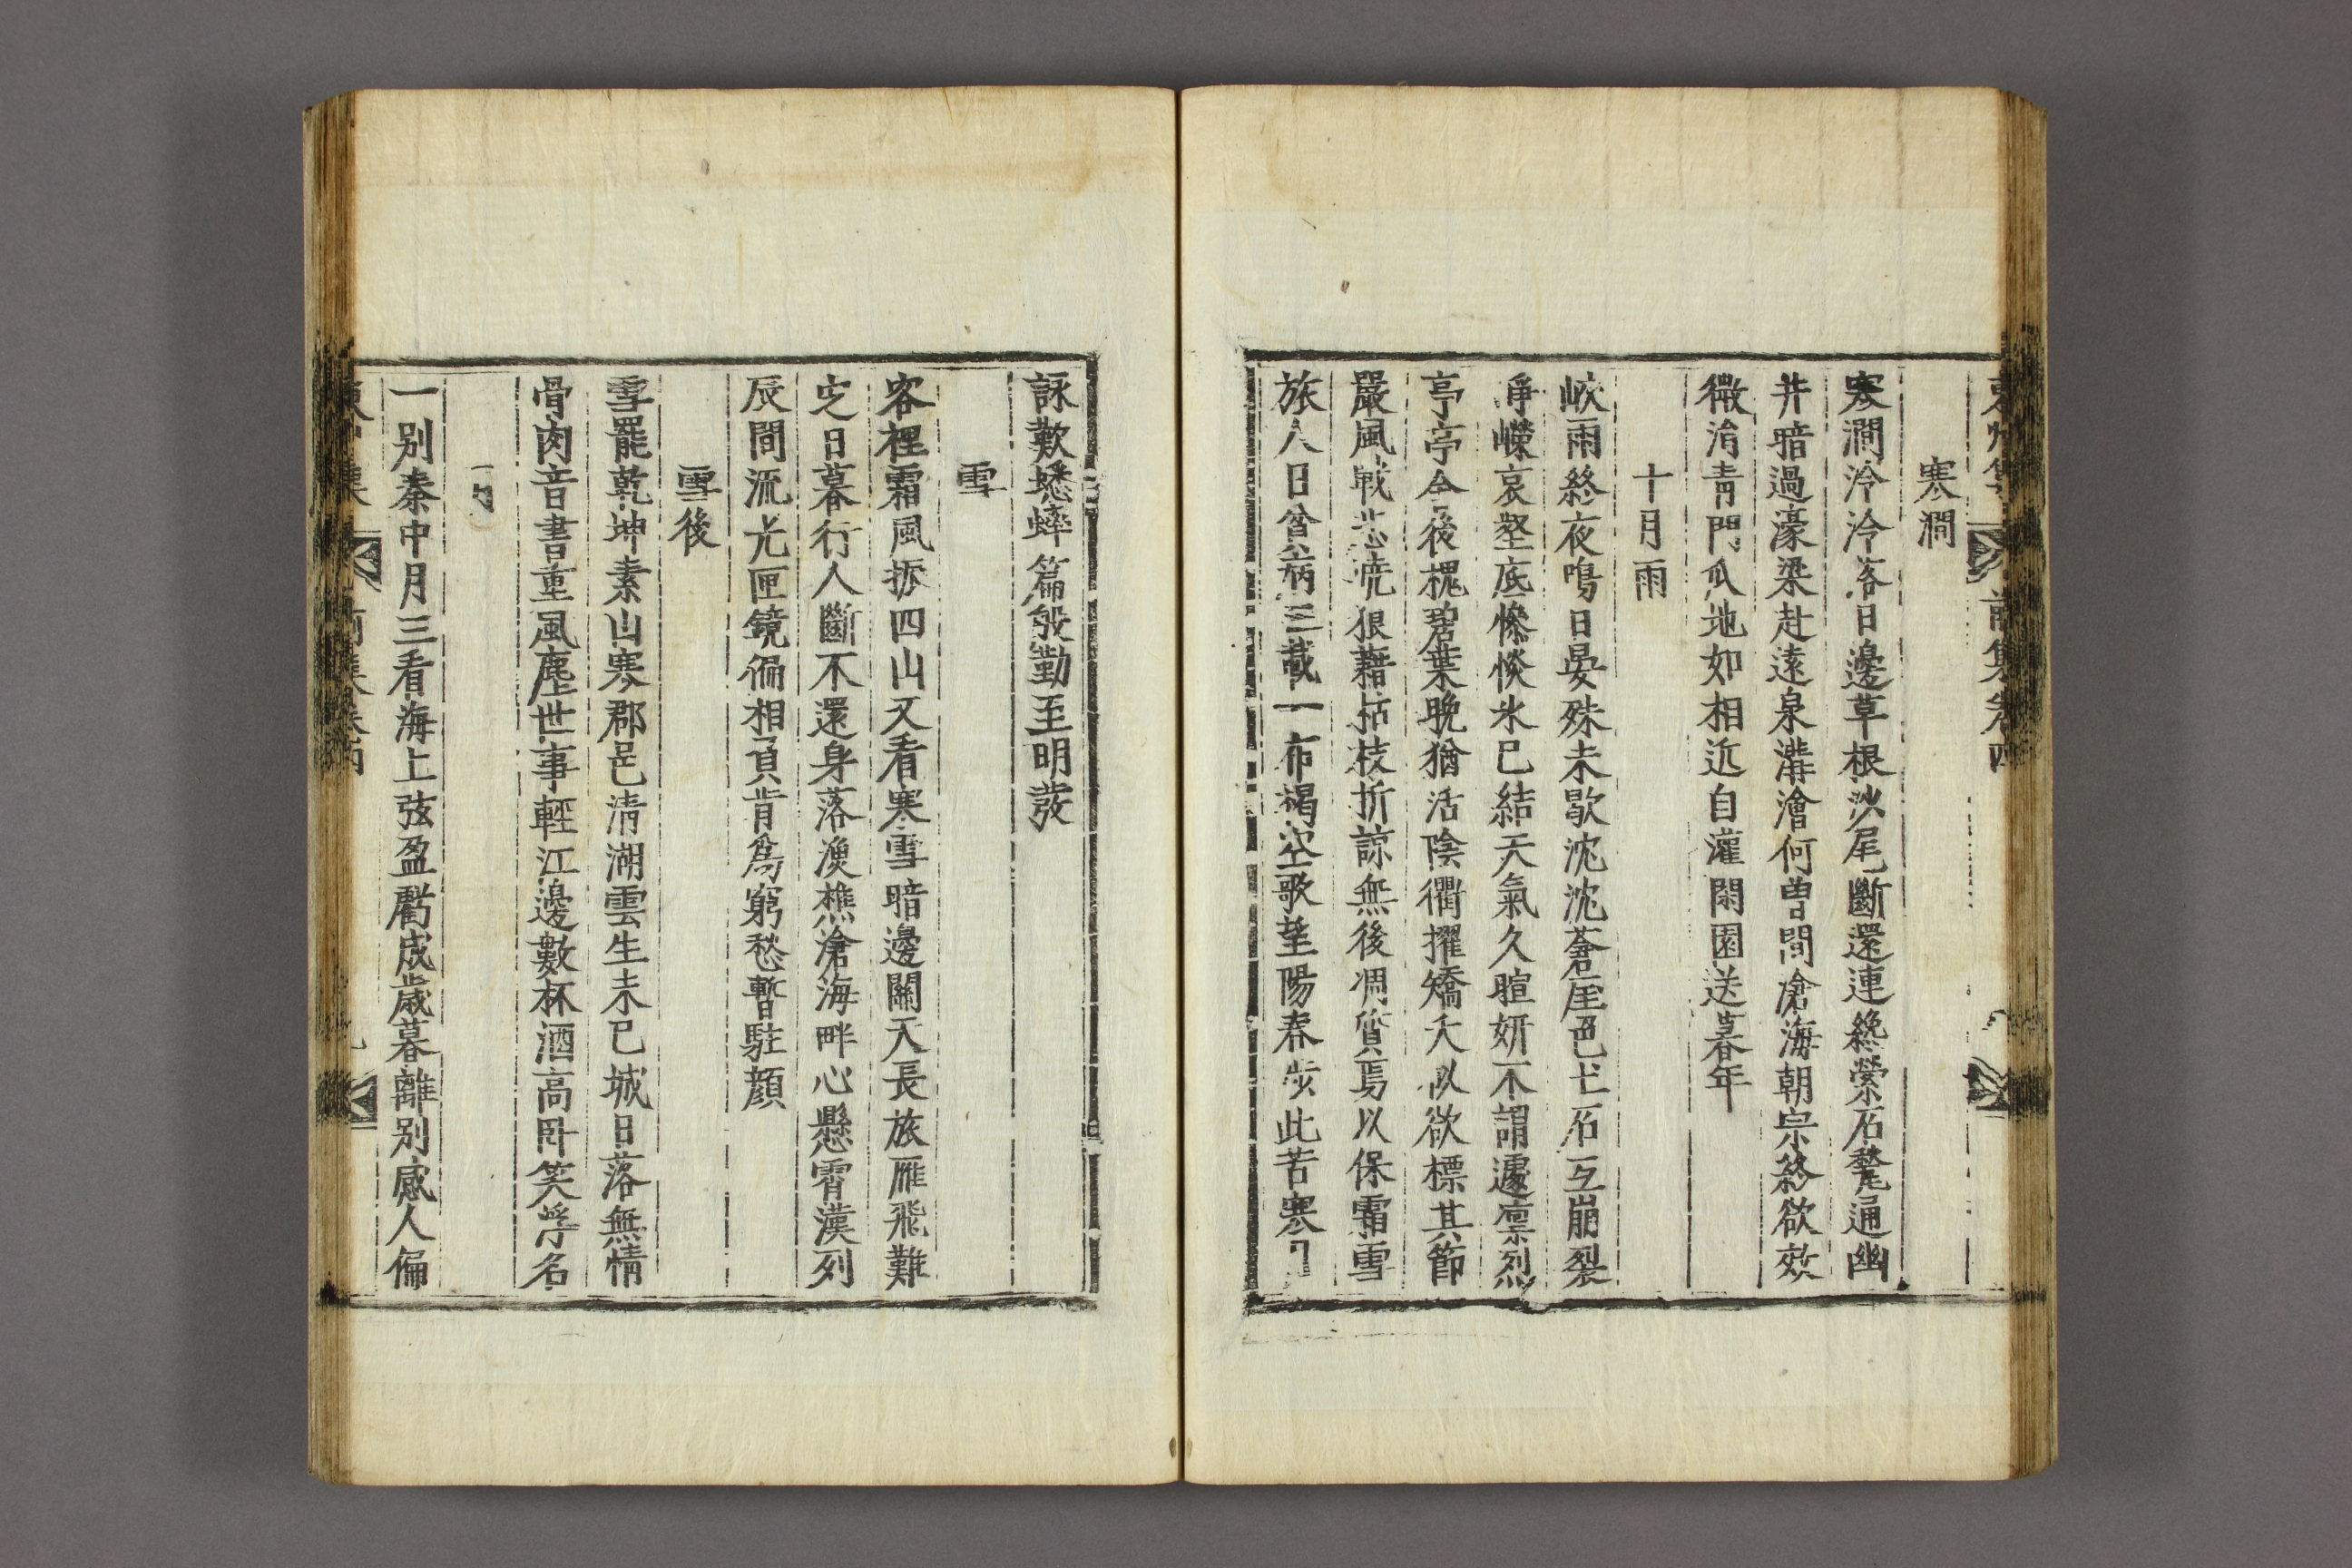 東州集 前集卷四
寒澗
寒澗泠泠落日邊草根沙尾斷還連纔縈石甃通幽
井暗過濠梁赴遠泉溝澮何曾間滄海朝宗終欲效
微涓靑門瓜地如相近自灌閑園送暮年
十月雨
峽雨終夜鳴日晏殊未歇沈沈蒼崖色土石互崩裂
崢嶸哀壑底慘惔氷已結天氣久暄妍不謂遽凛烈
亭亭今後槐碧葉晩猶活陰衢擢矯夭似欲標其節
嚴風戰悲吭狼藉枯枝折諒無後凋質焉以保霜雪
旅人日曾病三載一布褐空歌望陽春歩此苦寒
詠歎蟋蟀篇殷勤至明發
雪
客裡霜風振四山又看寒雪暗邊關天長旅雁飛難
定日暮行人斷不還身落漁樵滄海畔心懸霄漢列
辰間流光匣鏡偏相負肯爲窮愁暫駐顔
雪後
雪罷乾坤素山寒郡邑淸湖雲生未已城日落無情
骨肉音書重風塵世事輕江邊數杯酒高卧笑浮名
一別秦中月三看海上弦盈虧成歲暮離別感人偏
前集卷四